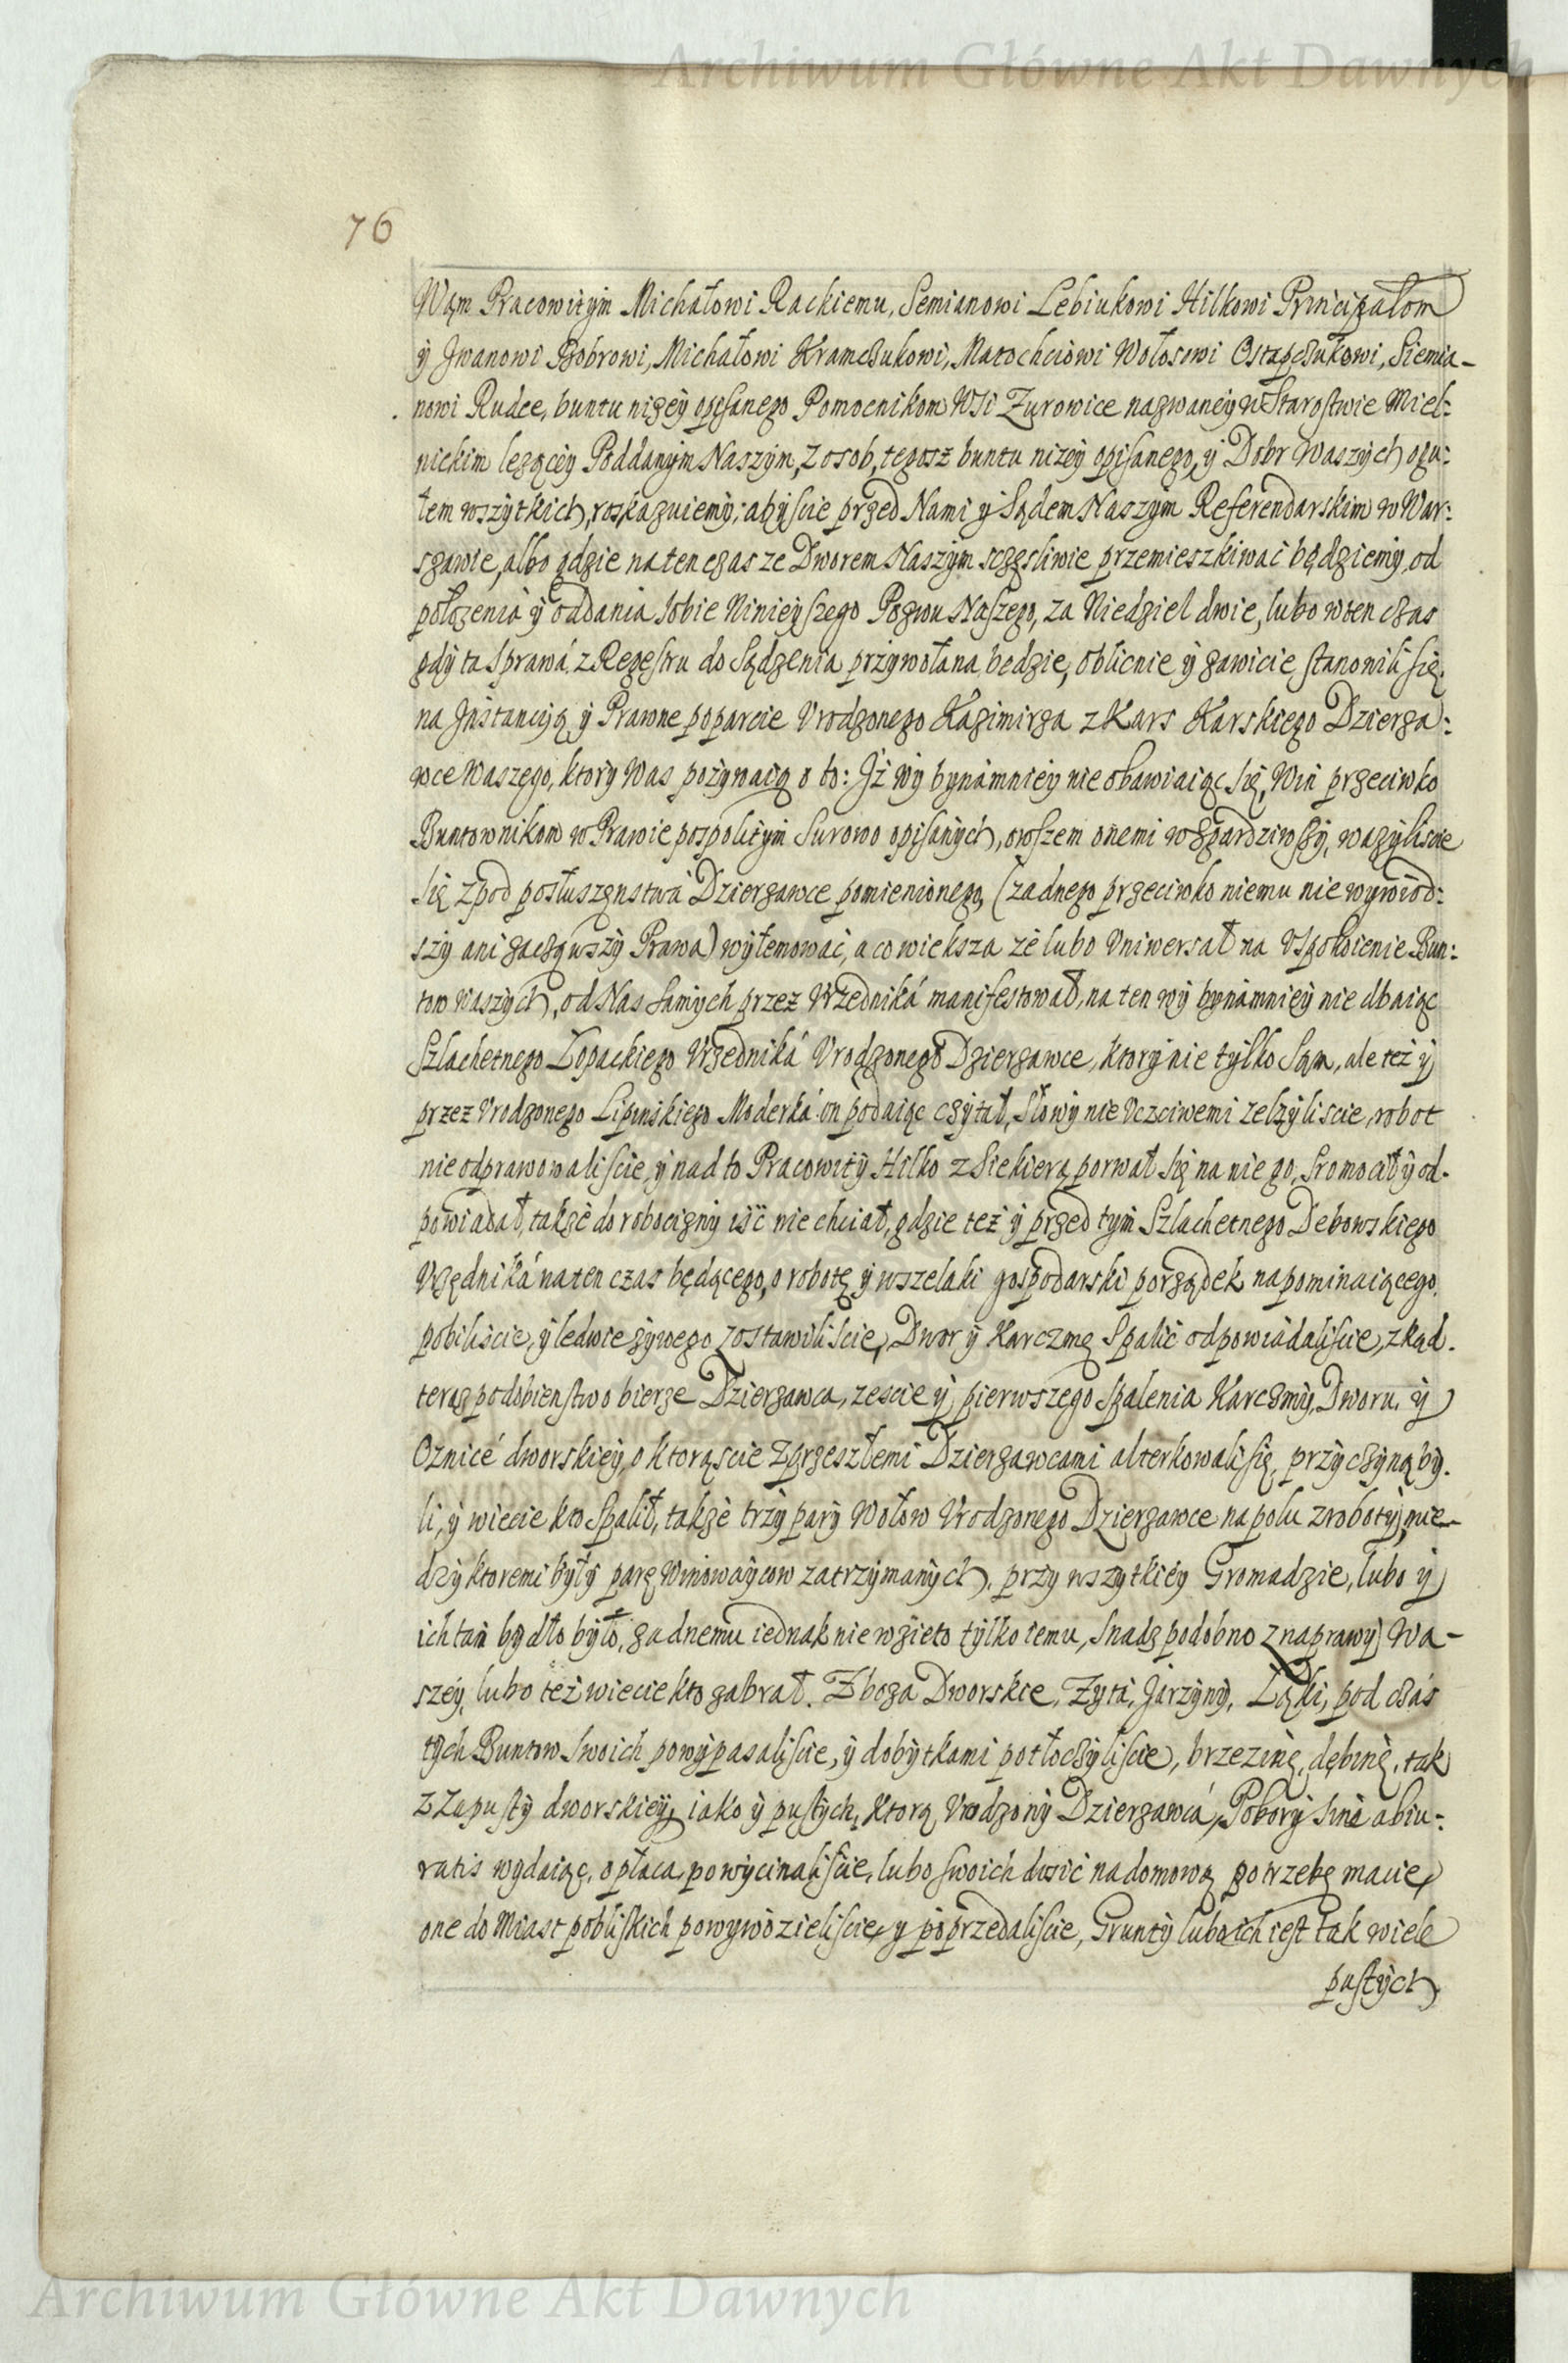 Archiwum Główne Akt Dawnych
76
Wąm Pracowitym Michałowi Rackiemu, Semianowi Lebiukowi Hilkowi Principałom
y Jwanowi Bobrowi, Michałowi Kramczukowi, Matochciowi Wołosowi Ostapczukowi, Siemia-
nowi Rudce, buntu niżey opisanego Pomocnikom WSi Zurowice nazwaney w Starostwie Miel:
nickim leżącey Poddanym Naszym, Z osob, tegosz buntu niżey opisanego, y Dobr Waszych ogu:
łem wszytkich, roskazuiemy: abyscie przed Nami y Sądem Naszym Referendarskim w War:
szawie, albo gdzie na ten czas ze Dworem Naszym sczęsliwie przemieszkiwać będziemy, od
położenia y oddania sobie Ninieyszego Pozwu Naszego, za Niedziel dwie, lubo w ten czas
gdy ta Sprawá z Regestru do Sądzenia przywołana będzie, oblicnie y zawicie stanowili się,
na Jnstancyą y Prawne poparcie Vrodzonego Kazimirza z Kars Karskiego Dzierza:
wce Waszego, ktory Was pozywaią o to: Jż wy bynámniey nie obawiaiąc się, Win przeciwko
Buntownikom w Prawie pospolitym surowo opisanych, owszem onemi wzgardziwszy, ważyliscie
się zpod posłuszenstwá Dzierzawce pomienionego, (żadnego przeciwko niemu nie wywiod:
szy ani zacząwszy Prawa) wyłemować, a co większa że lubo Vniwersał na Vspokoienie Bun:
tow waszych, od Nas samych przez Vrzedniká manifestował, na ten wy bynámniey nie dbaiąc
Szlachetnego Łopackiego Vrzedniká Vrodzonego Dzierzawce, ktory nie tylko Sąm, ale też y
przez Vrodzonego Lipinskiego Moderká on podaiąc czytał, Słowy nie Vczciwemi zelzyliscie, robot
nie odprawowaliscie, y nad to Pracowity Hilko z Siekierą porwał się na niego, sromocił y od-
powiadał, także do robocizny iść nie chciał, gdzie też y przed tym Szlachetnego Debowskiego
Vrzędniká na ten czas będącego, o robotę y wszelaki gospodarski porządek napominaiącego
pobiliscie, y ledwie żywego zostawiliscie, Dwor y Karczmę Spalić odpowiadaliscie, zkąd
teraz podobienstwo bierze Dzierzawca, zescie y pierwszego spalenia Karczmy, Dworu, y
Oznicé dworskiey, o ktorąscie z przeszłemi Dzierzawcami alterkowali się, przyczyną by-
li, y wiecie kto Spalił, także trzy pary Wołow Vrodzonego Dzierzawce na polu z roboty, mie-
dzy ktoremi były parę Winowaycow zatrzymanych, przy wszytkiey Gromadzie, lubo y
ich tam bydło było, żadnemu iednak nie wzięto tylko iemu, snadz podobno z naprawy Wa-
széy, lubo też wiecie kto zabrał. Zboża Dworskie, Zyta, Jarzyny, Ląki, pod czás
tych Buntow swoich powypasaliscie, y dobytkami potłoczyliscie, brzezinę, dębinę, tak
z Zapusty dworskiey, iako y pustych, ktorą Vrodzony Dzierzawcá, Pobory sine abiu:
ratis wydaiąc, opłaca, powycinaliscie, lubo swoich dosić na domową potrzebę macie,
one do Miast pobliskich powywoziliscie, y poprzedaliscie, Grunty lubo ich iest tak wiele
pustych
Archiwum Główne Akt Dawnych